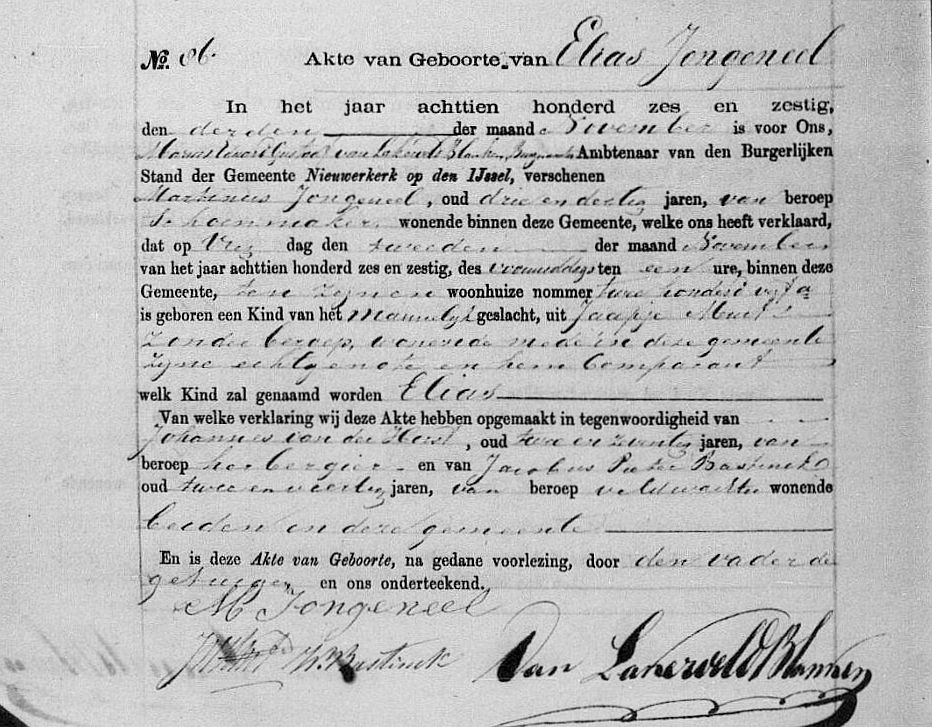 No. 86. Akte van Geboorte van Elias Jongeneel
In het jaar achttien honderd zes en zestig,
den derden der maand November is voor Ons,
van Lakerveld Blanken, Burgemeester Ambtenaar van den Burgerlijken
Stand der Gemeente Nieuwerkerk op den IJssel, verschenen
Martinus Jongeneel, oud drie en dertig jaren, van beroep
Schoenmaker, wonende binnen deze Gemeente, welke ons heeft verklaard,
dat op Vrij dag den tweeden der maand November
van het jaar achttien honderd zes en zestig, des voormiddags ten een ure, binnen deze
Gemeente, ten zynen woonhuize nommer twee honderd vijf a
is geboren een Kind van het Mannelijk geslacht, uit Jaapje
zonder beroep, wonende mede in deze gemeente
zyne echtgenote en hem Comparant
welk Kind zal genaamd worden Elias
Van welke verklaring wij deze Akte hebben opgemaakt in tegenwoordigheid van
Johannes van der Horst, oud twee en zeventig jaren, van
beroep herbergier en van Jacobus Pieter Bastinck
oud twee en veertig jaren, van beroep veldwachter wonende
beiden in deze gemeente
En is deze Akte van Geboorte, na gedane voorlezing, door den vader de
getuigen en ons onderteekend.
M Jongeneel
Bastinck Van Lakerveld Blanken